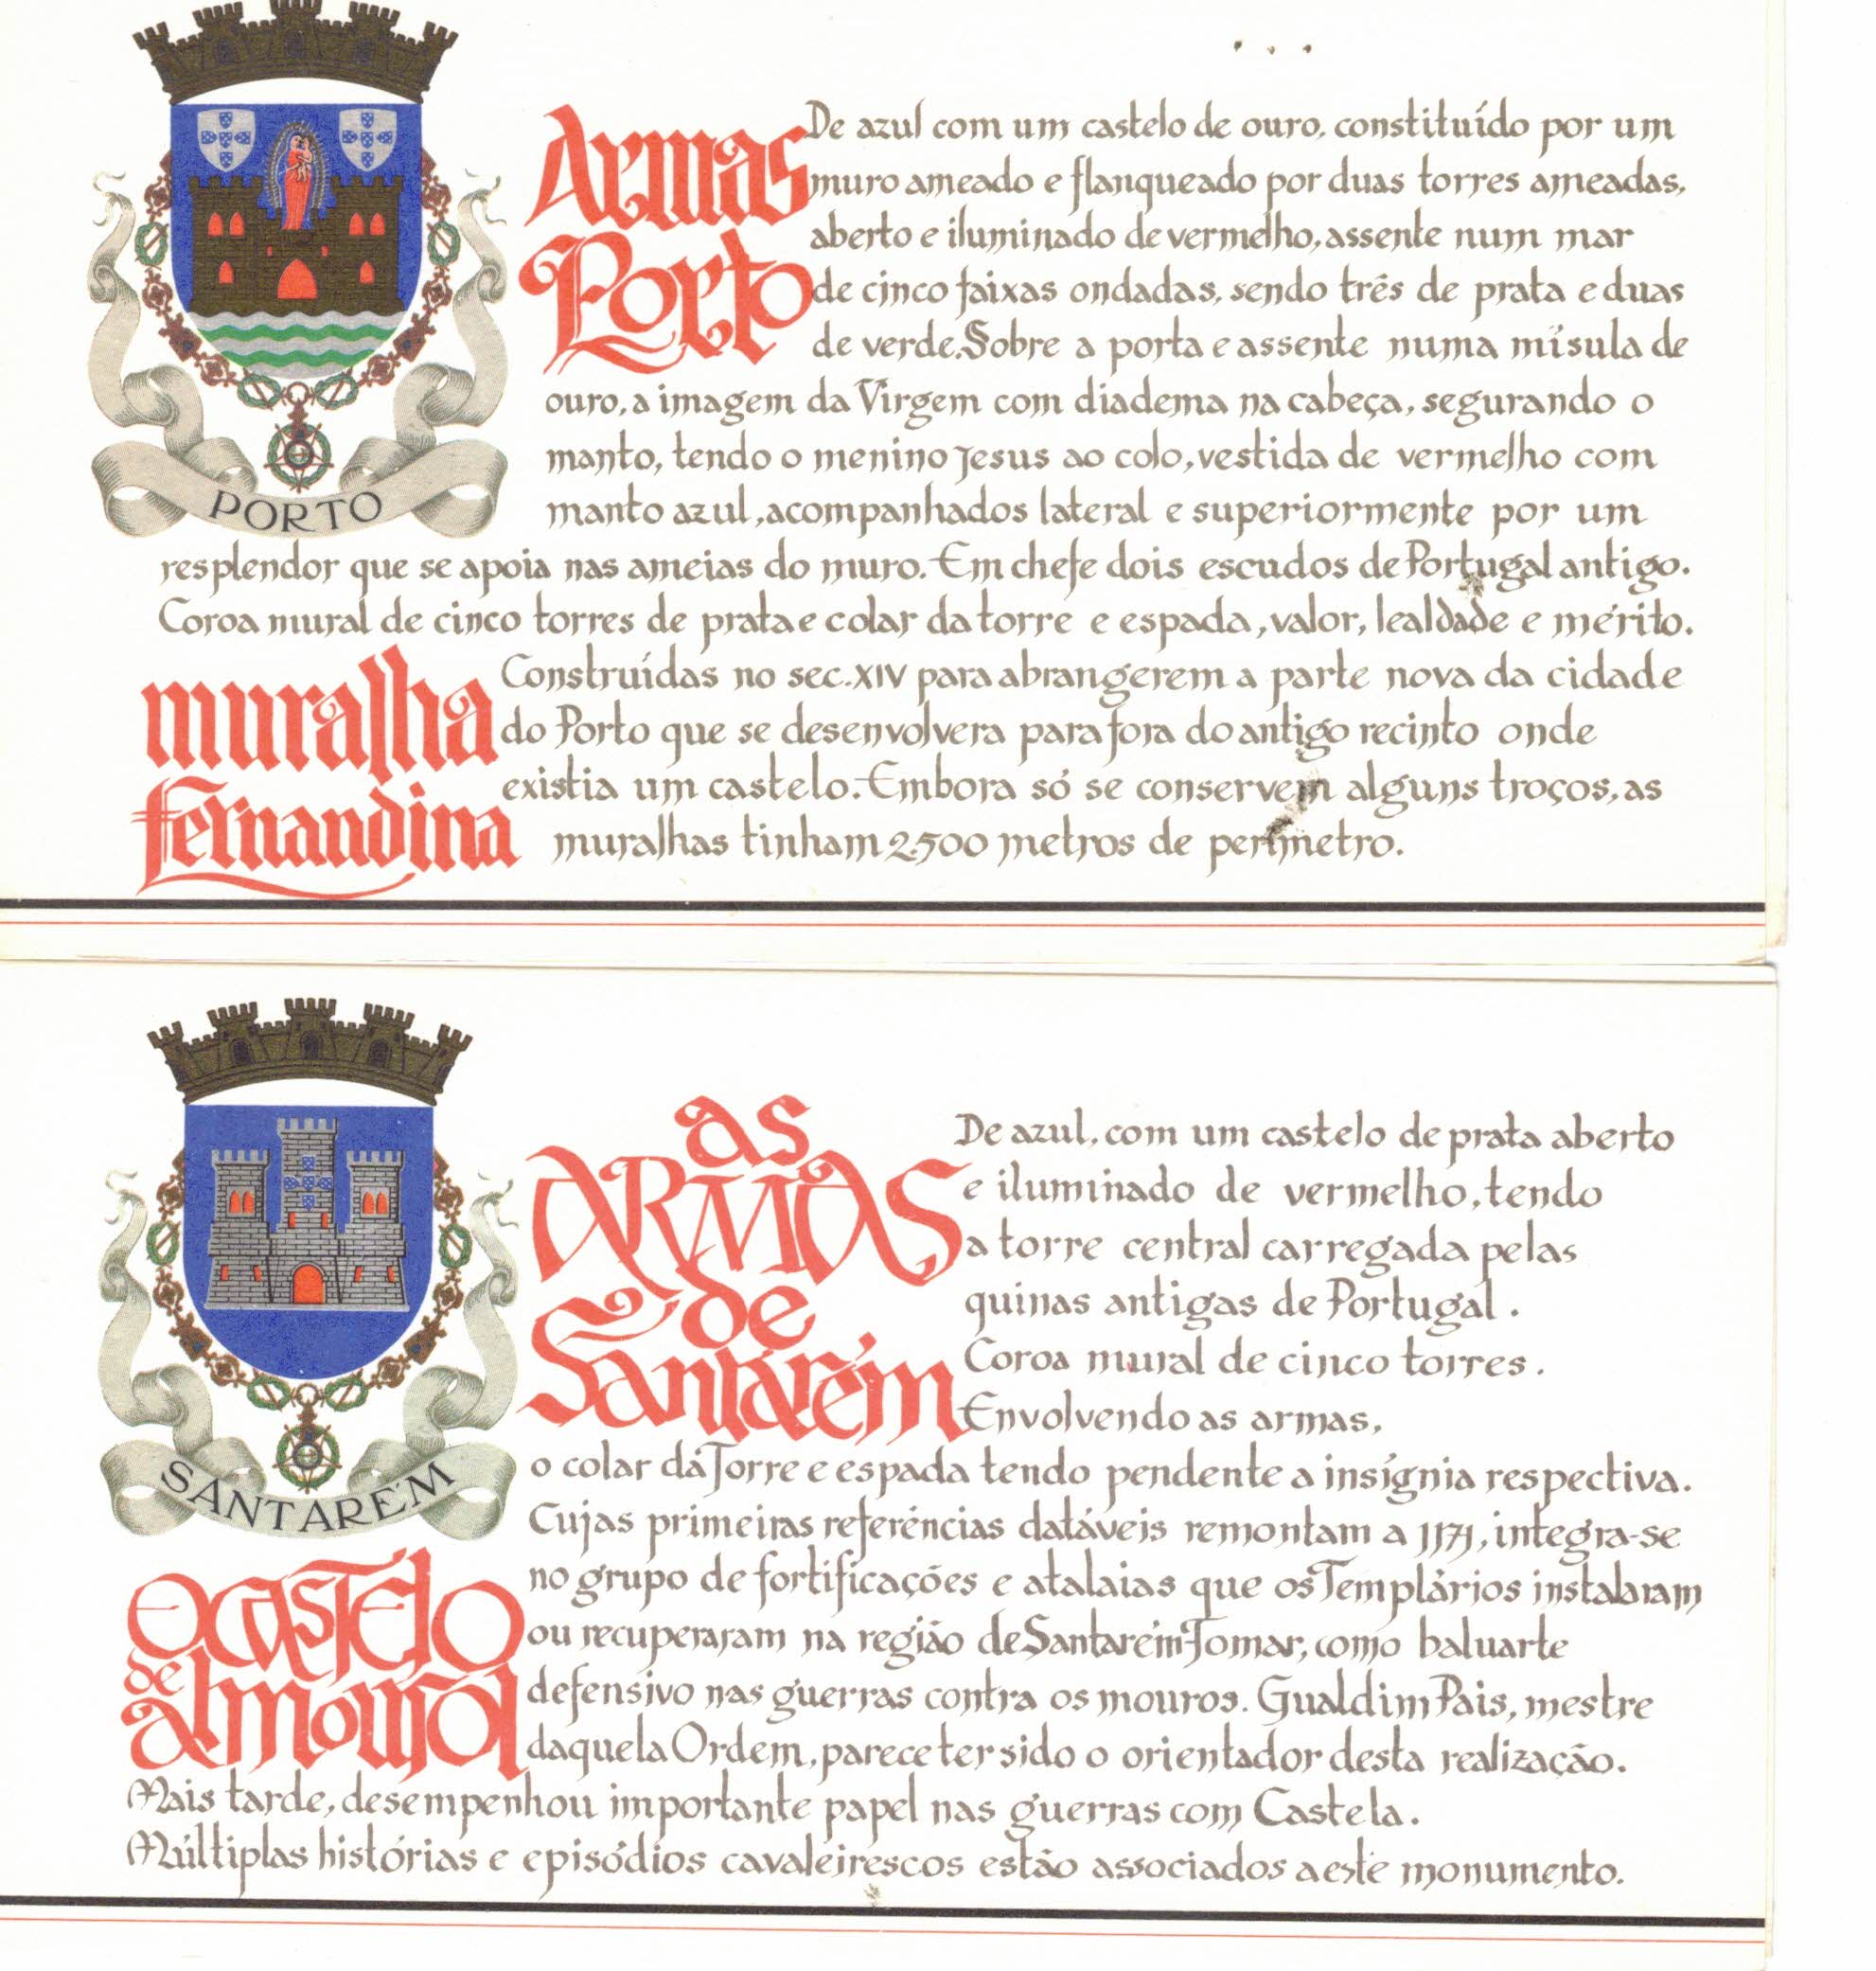 PORTO
Armas
Porto
De azul com um castelo de ouro, constituído por um
muro ameado e flanqueado por duas torres ameadas,
aberto e iluminado de vermelho, assente num mar
de cinco faixas ondadas, sendo três de prata e duas
de verde. Sobre a porta e assente numa mísula de
ouro, a imagem da Virgem com diadema na cabeça, segurando o
manto, tendo o menino Jesus ao colo, vestida de vermelho com
manto azul, acompanhados lateral e superiormente por um
resplendor que se apoia nas ameias do muro. Em chefe dois escudos de Portugal antigo.
Coroa mural de cinco torres de prata e colar da torre e espada, valor, lealdade e mérito.
muralha
Fernandina
Construídas no sec. XIV para abrangerem a parte nova da cidade
do Porto que se desenvolvera para fora do antigo recinto onde
existia um castelo. Embora só se conservem alguns troços, as
muralhas tinham 2.500 metros de perímetro.
SANTARÉM
as
ARMAS
de
Santarém
De azul, com um castelo de prata aberto
e iluminado de vermelho, tendo
a torre central carregada pelas
quinas antigas de Portugal.
Coroa mural de cinco torres.
Envolvendo as armas,
o colar da Torre e espada tendo pendente a insígnia respectiva.
O CASTELO
de
almourol
Cujas primeiras referências datáveis remontam a 1171, integra-se
no grupo de fortificações e atalaias que os Templários instalaram
ou recuperaram na região de Santarém-Tomar, como baluarte
defensivo nas guerras contra os mouros. Gualdim Pais, mestre
daquela Ordem, parece ter sido o orientador desta realização.
Mais tarde, desempenhou importante papel nas guerras com Castela.
Múltiplas histórias e episódios cavaleirescos estão associados a este monumento.